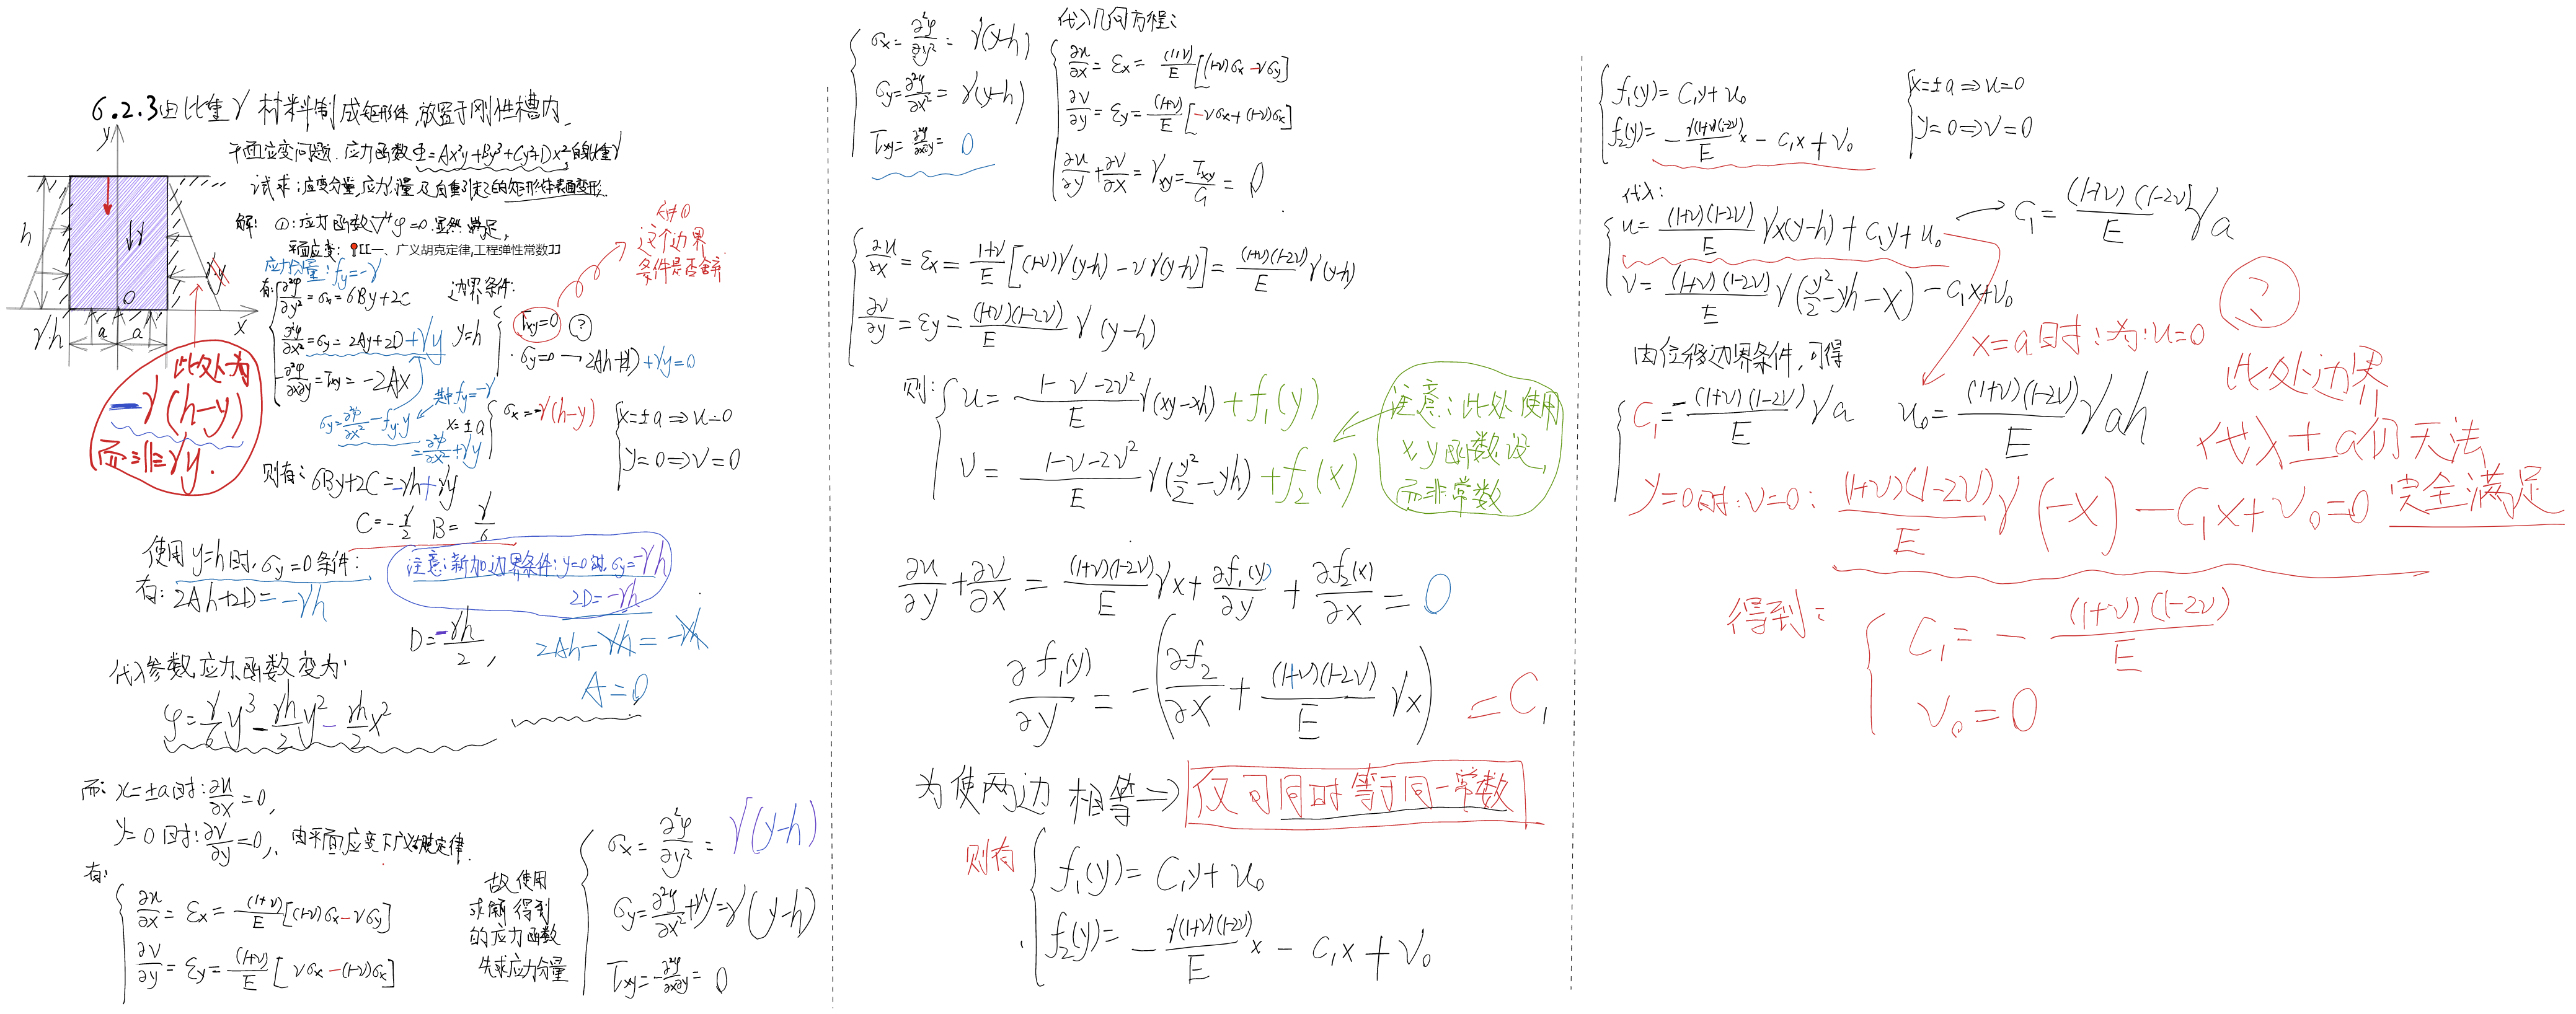 6.2.3 由比重γ材料制成矩形体,放置于刚性槽内.
平面应变问题. 应力函数Φ=Ax²y+By³+Cy²+Dx²
试求:应变分量,应力分量及自重引起的矩形体表面变形.
解: ①: 应力函数∇⁴φ=0.显然满足,
平面应变: 📍[[一、广义胡克定律,工程弹性常数]]
y
h
γ
γy
O
x
γh
a
a
此处为
-γ(h-y)
而非γy.
应力分量: f_y=-γ
有:
∂²φ/∂y²=σx=6By+2C
∂²φ/∂x²=σy=2Ay+2D+γy
-∂²φ/∂x∂y=τxy=-2Ax
σy=∂²φ/∂x²-fy·y
其中fy=-γ
=∂²φ/∂x²+γy
边界条件:
y=h
τxy=0 ?
σy=0→2Ah+2D+γy=0
这个边界
条件是否舍弃
x=±a
σx=-γ(h-y)
x=±a⇒u=0
y=0⇒v=0
则有: 6By+2C=-γh+γy
C=-γ/2 B=γ/6
使用y=h时,σy=0条件:
有: 2Ah+2D=-γh
注意:新加边界条件:y=0时,σy=-γh
2D=-γh
D=-γh/2,
2Ah-γh=-γh
A=0
代入参数,应力函数变为:
φ=γ/6 y³-γh/2 y²-γh/2 x²
而: x=±a时:∂u/∂x=0,
y=0时:∂v/∂y=0,由平面应变下广义胡克定律.
有:
∂u/∂x=εx=(1+ν)/E[(1-ν)σx-νσy]
∂v/∂y=εy=(1+ν)/E[νσx-(1-ν)σx]
故使用
求解得到
的应力函数
先求应力分量
σx=∂²φ/∂y²=γ(y-h)
σy=∂²φ/∂x²+γy=γ(y-h)
τxy=-∂²φ/∂x∂y=0
σx=∂²φ/∂y²=γ(y-h)
σy=∂²φ/∂x²=γ(y-h)
τxy=∂²φ/∂x∂y=0
代入几何方程:
∂u/∂x=εx=(1+ν)/E[(1-ν)σx-νσy]
∂v/∂y=εy=(1+ν)/E[-νσx+(1-ν)σx]
∂u/∂y+∂v/∂x=γxy=τxy/G=0
∂u/∂x=εx=(1+ν)/E[(1-ν)γ(y-h)-νγ(y-h)]=(1+ν)(1-2ν)/E γ(y-h)
∂v/∂y=εy=(1+ν)(1-2ν)/E γ(y-h)
则:
u=(1-ν-2ν²)/E γ(xy-xh)+f₁(y)
v=(1-ν-2ν²)/E γ(y²/2-yh)+f₂(x)
注意:此处使用
x,y函数设,
而非常数
∂u/∂y+∂v/∂x=(1+ν)(1-2ν)/E γx+∂f₁(y)/∂y+∂f₂(x)/∂x=0
∂f₁(y)/∂y=-(∂f₂/∂x+(1+ν)(1-2ν)/E γx)=C₁
为使两边相等⇒仅可同时等于同一常数
则有
f₁(y)=C₁y+u₀
f₂(y)=-γ(1+ν)(1-2ν)/E x-C₁x+v₀
f₁(y)=C₁y+u₀
f₂(y)=-γ(1+ν)(1-2ν)/E x-C₁x+v₀
x=±a⇒u=0
y=0⇒v=0
代入:
u=(1+ν)(1-2ν)/E γx(y-h)+C₁y+u₀
→C₁=(1+ν)(1-2ν)/E γa
v=(1+ν)(1-2ν)/E γ(y²/2-yh-x)-C₁x+v₀
x=a时:为:u=0
由位移边界条件,可得
C₁=-(1+ν)(1-2ν)/E γa u₀=(1+ν)(1-2ν)/E γah
?
此处边界
代入±a仍无法
完全满足
y=0时:v=0: (1+ν)(1-2ν)/E γ(-x)-C₁x+v₀=0
得到:
C₁=-(1+ν)(1-2ν)/E
v₀=0